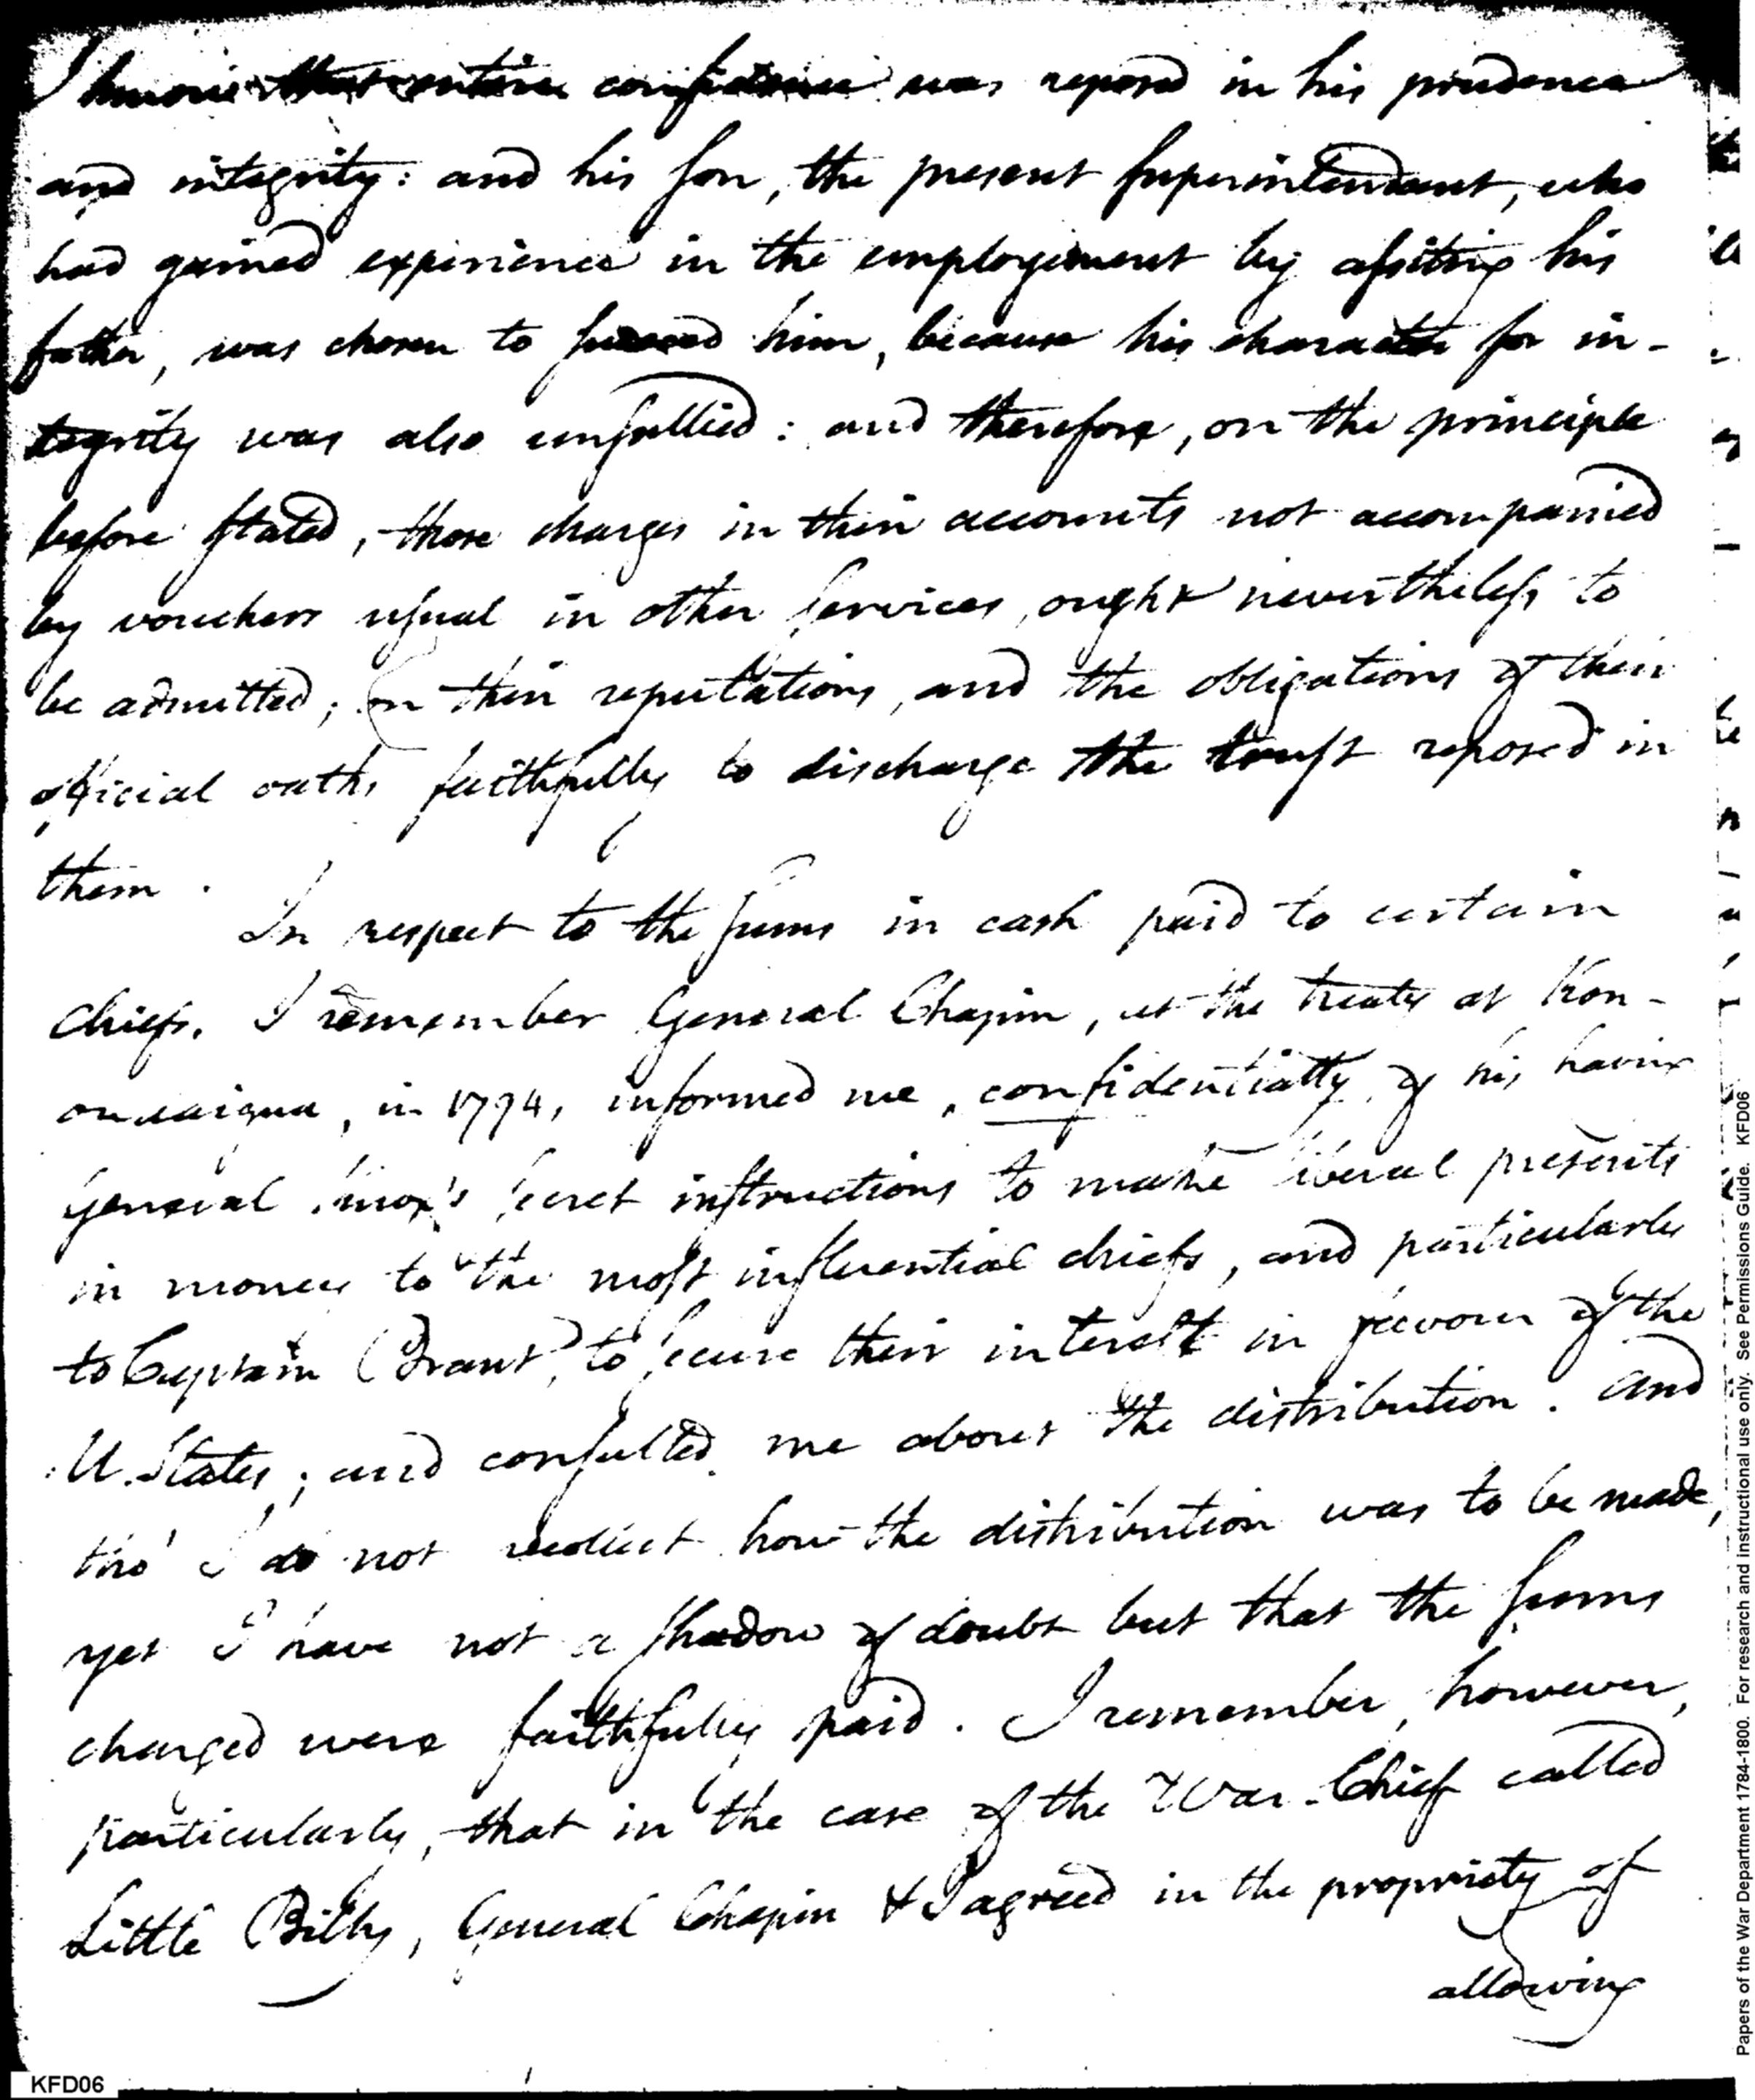 I know that entire confidence was reposed in his prudence
and integrity: and his son, the present superintendant, who
had gained experience in the employment by assisting his
father, was chosen to succeed him, because his character for in-
tegrity was also unsullied: and therefore, on the principle
before stated, those charges in their accounts not accompanied
by vouchers usual in other services, ought nevertheless to
be admitted; on their reputations, and the obligations of their
official oaths faithfully to discharge the trust reposed in
them.
In respect to the sums in cash paid to certain
chiefs. I remember General Chapin, at the treaty at Kon-
ondaigua, in 1794, informed me, confidentially, of his having
General Knox's secret instructions to make liberal presents
in money to the most influential chiefs, and particularly
to Captain Brant, to secure their interest in favour of the
U. States; and consulted me about the distribution. And
tho' I do not recollect how the distribution was to be made,
yet I have not a shadow of doubt but that the sums
charged were faithfully paid. I remember, however,
particularly, that in the case of the War-Chief called
Little Billy, General Chapin & I agreed in the propriety of
allowing
KFD06
Papers of the War Department 1784-1800. For research and instructional use only. See Permissions Guide. KFD06